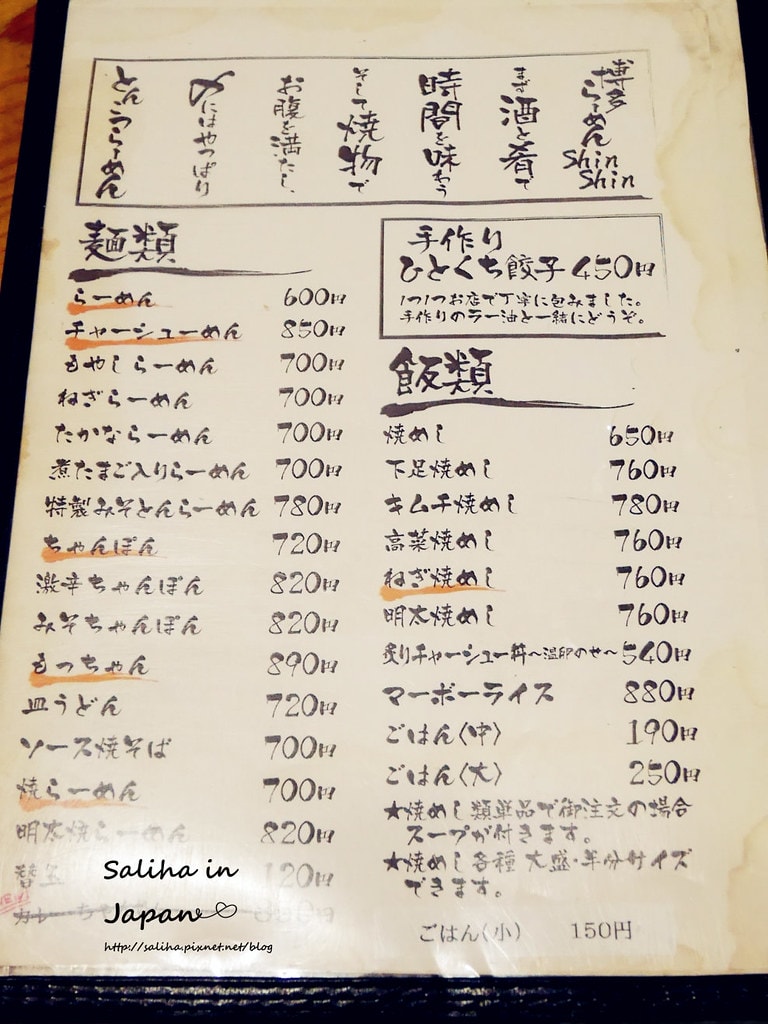 博多らーめん Shin Shin
まず酒と肴で
時間を味わう
そして焼物で
お腹を満たし、
〆にはやっぱり
とんこつらーめん
麺類
らーめん 600円
チャーシューめん 850円
もやしらーめん 700円
ねぎらーめん 700円
たかならーめん 700円
煮たまご入りらーめん 700円
特製みそとんらーめん 780円
ちゃんぽん 720円
激辛ちゃんぽん 820円
みそちゃんぽん 820円
もつちゃん 890円
皿うどん 720円
ソース焼そば 700円
焼らーめん 700円
明太焼らーめん 820円
替玉 120円
手作り
ひとくち餃子 450円
1つ1つお店で丁寧に包みました。
手作りのラー油と一緒にどうぞ。
飯類
焼めし 650円
下足焼めし 760円
キムチ焼めし 780円
高菜焼めし 760円
ねぎ焼めし 760円
明太焼めし 760円
炙りチャーシュー丼〜温卵のせ〜 540円
マーボーライス 880円
ごはん〈中〉 190円
ごはん〈大〉 250円
★焼めし類単品で御注文の場合
スープが付きます。
★焼めし各種 大盛・半分サイズ
できます。
ごはん(小) 150円
Saliha in
Japan
http://saliha.pixnet.net/blog